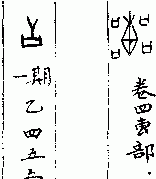 卷四叀部.
一期乙四五